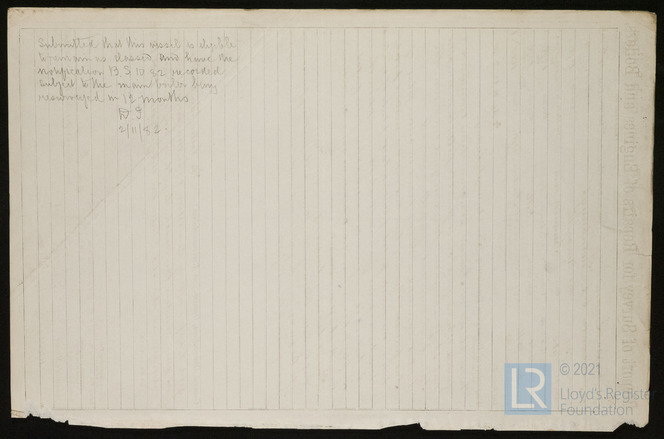 Submitted that this vessel is eligible
to remain as classed and have the
notification B.S 10 82 recorded
subject to the main boiler being
resurveyed in 12 months
2/11/82.
© 2021
LR
Lloyd's Register
Foundation